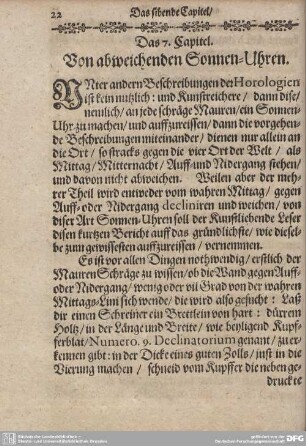 22
Das sibende Capitel/
Das 7. Capitel.
Von abweichenden Sonnen-Uhren.
UNter andern Beschreibungen der Horologien
ist kein nutzlich: und Kunstreichere / dann dise/
nemlich / an jede schräge Mauren / ein Sonnen-
Uhr zu machen / und auffzureissen / dann die vorgehen-
de Beschreibungen miteinander / dienen nur allein an
die Ort / so stracks gegen die vier Ort der Welt / als
Mittag / Mitternacht / Auff- und Nidergang stehen/
und davon nicht abweichen. Weilen aber der meh-
rer Theil wird entweder vom wahren Mitag / gegen
Auff- oder Nidergang decliniren und weichen / von
diser Art Sonnen-Uhren soll der Kunstliebende Leser
disen kurtzen Bericht auff das gründlichste / wie diesel-
be zum gewissesten auffzureissen / vernemmen.
Es ist vor allen Dingen nothwendig / erstlich der
Mauren Schräge zu wissen / ob die Wand gegen Auff-
oder Nidergang / wenig oder vil Grad von der wahren
Mittags-Lini sich wende / die wird also gesucht: Laß
dir einen Schreiner ein Brettlein von hart: dürrem
Holtz / in der Länge und Breite / wie beyligend Kupf-
ferblat / Numero. 9. Declinatorium genant / zu er-
kennen gibt: in der Dicke eines guten Zolls / just in die
Vierung machen / schneid vom Kupffer die neben ge-
druckte